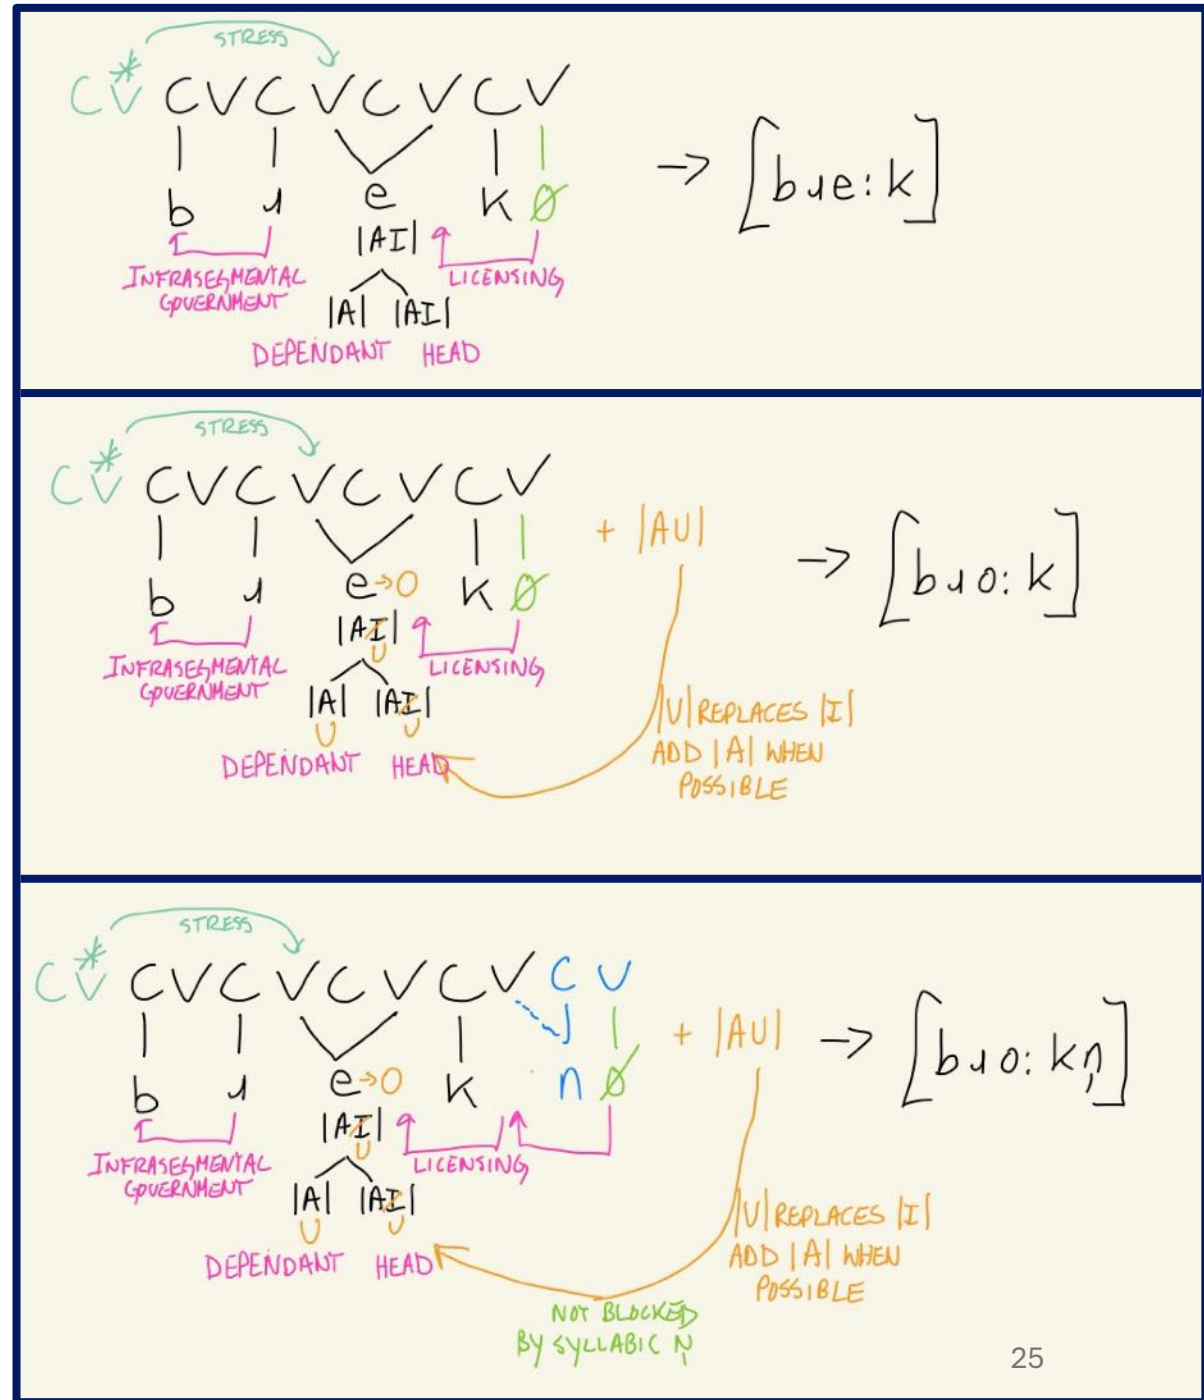 STRESS
CV* CVCVCVCV
b ɹ e k Ø
|AI|
INFRASEGMENTAL
GOVERNMENT
LICENSING
|A| |AI|
DEPENDANT HEAD
→ [bɹe:k]
STRESS
CV* CVCVCVCV
b ɹ e→o k Ø
|AI|
U
INFRASEGMENTAL
GOVERNMENT
LICENSING
|A| |AI|
U U
DEPENDANT HEAD
+ |AU|
|U| REPLACES |I|
ADD |A| WHEN
POSSIBLE
→ [bɹo:k]
STRESS
CV* CVCVCVCVCV
b ɹ e→o k n Ø
|AI|
U
INFRASEGMENTAL
GOVERNMENT
LICENSING
|A| |AI|
U U
DEPENDANT HEAD
+ |AU|
|U| REPLACES |I|
ADD |A| WHEN
POSSIBLE
NOT BLOCKED
BY SYLLABIC N̩
→ [bɹo:kn̩]
25